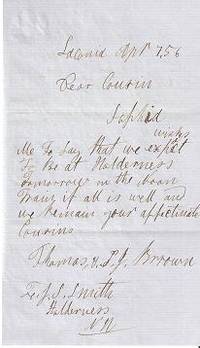 Laconia Apr 7, 56
Dear Cousin
Sophia
wishes
Me To Say that we expect
To be at Holderness
Tomorrow in the Noon
Train if all is well and
we Remain your affectinate
Cousins
Thomas & S. J. Brown
To J. S. Smith
Holderness
N H